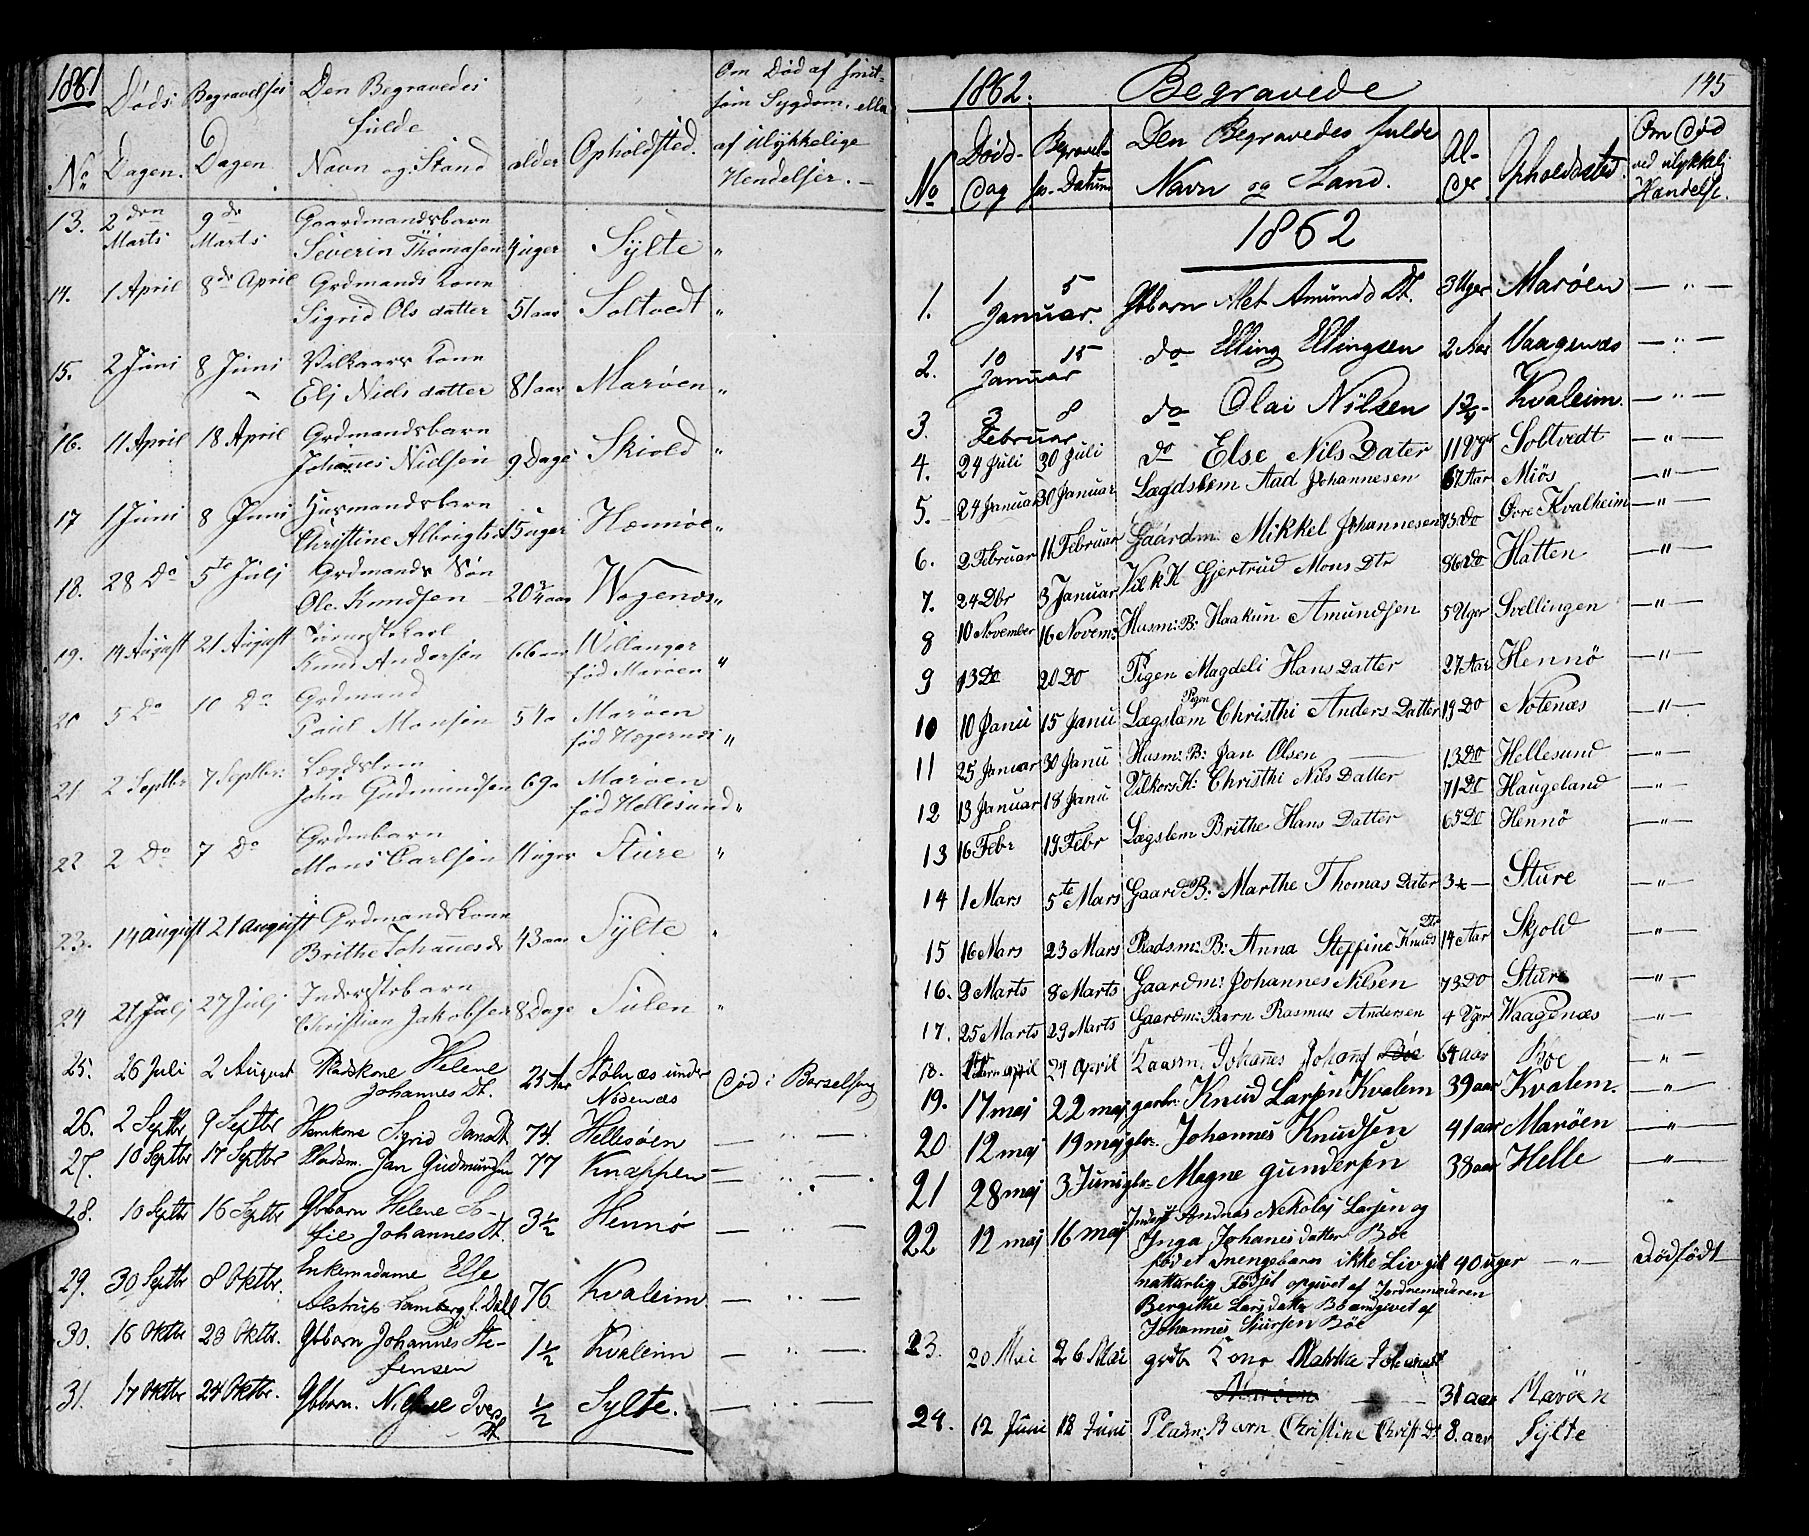 1861
Døds Dagen. Begravelses Dagen Den Begravedes fulde Navn og Stand alder Opholdsted. Om Død af smitsom Sygdom, eller af Ulykkelige Hendelser. —
No
13. 2den Marts 9de Marts Gaardmandsbarn
Severin Thomasen 4 uger Sylte "
14. 1 April 8de April Grdmands Kone
Sigrid Ols datter 51 aar Soltvedt "
15. 2 Juni 8 Juni Vilkaars Kone
Elj Niels datter 81 aar Marøen "
16. 11 April 18 April Grdmandsbarn
Johannes Nielsen 9 Dage Skiold "
17 1 Juni 8 Juni Husmandsbarn
Christine Albrigtsd 15 uger Hæmøe "
18. 28 Do 5te Julj Grdmands Søn
Ole Knudsen 20 3/4 aar Wogenæs "
19. 14 August 21 August
Knud Andersen 66 aar Willanger
fød Marøen "
20 5 Do 10 Do Grdmand
Paul Monsen 54 a Marøen
fød Hægernæs "
21 2 Septbr 7 Septbr: Lægdslem
John Gudmundsen 69 a Marøen
fød Hellesund "
22 2 Do 7 Do Grdmbarn
Mons Carlsen 11 uger Sture "
23. 14 august 21 august Grdmandskone
Brithe Johannesdr 43 aar Sylte "
24 21 Julj 27 Julj Inderstebarn
Christian Jakobsen 8 Dage Sulen "
25. 26 Juli 2 August Pladskone Helene
Johannes Dt. 25 Aar Stølnæs under
Nodenæs Død i Barselseng
26. 2 Septbr 9 Septbr Hemkone Sigrid Jansdt. 74. Hellesøen — " —
27. 10 Septbr 17 Septbr Pladsm. Jan Gudmundsen 77 Knappen — " —
28. 10 Septbr 16 Septbr Gbbarn Helene So-
fie Johannes Dt. 3 1/2 Hennø — " —
29. 30 Septbr 8 Oktbr. Enkemadame Else
Alstrup Lamberg f. Dahl 76. Kvaleim — " —
30. 16 Oktbr 23 Oktbr. Gbbarn Johannes Ste-
fensen 1 1/2 Kvaleim — " —
31. 17 Oktbr 24 Oktbr. Gbbarn. Iver
Dt 1/2 Sylte. — " —
1862. Begravede 145
No Døds- Dag Begravel- se-Datum Den Begravedes fulde Navn og Stand. Al- der Opholdssted. Om Død ved ulykkelig Hændelse.
1862
1. 1 5 Januar. Gbbarn Alet Amunds Dt. 3 Uger Marøen — " —
2. 10 15 Januar do Elling Ellingsen 2 Aar Vaagenæs — " —
3. 3 8 Februar do Olai Nilsen Kvaleim. — " —
4. 24 Juli 30 Juli do Else Nils Dater 11 Uger Soltvedt — " —
5. 24 Januar 30 Januar Lægdslem Aad Johannesen 67 Aar Miös — " —
6. 2 Februar 11 Februar Gaardm: Mikkel Johannesen 73 Do Øvre Kvalheim — " —
7. 24 Dbr 3 Januar Vilk K Gjertrud Mons Dtr 86 Do Hatten — " —
8 10 November 16 Novem: Husm: B: Haakun Amundsen 5 Uger Svellingen — " —
9 13 Do 20 Do Pigen Magdeli Hans Datter 27 Aar Hennö — " —
10 10 Janu 15 Janu Lægslem Pigen Christhi Anders Datter 19 Do Notenæs — " —
11 25 Januar 30 Janu Husm: B: Jan Olsen 13 Do Hellesund — " —
12 13 Januar 18 Janu Vilkors K: Christhi Nils Datter 71 Do Haugeland — " —
13 16 Febr 19 Febr Lægslem Brithe Hans Datter 65 Do Hennö — " —
14 1 Mars 5te Mars Gaard B: Marthe Thomas Dater Sture — " —
15 16 Mars 23 Mars Pladsm: B: Anna Steffine Knuds Dtr 14 Aar Skjold — " —
16. 3 Marts 8 Marts Gaardm: Johannes Nilsen 73 Do Sture — " —
17. 25 Marts 29 Marts Gaardm: Barn Rasmus Andersen 4 Uger Waagenæs — " —
18. april 29 April Kaarm. Johanes Johans Böe 64 aar Böe — " —
19. 17 maj 22 maj garbr: Knud Larsen Kvalem 39 aar Kvalem. — " —
20 12 maj 19 maj gbr. Johannes Knudsen 41 aar Marøen — " —
21 28 maj 3 Juni gbr. Magne gundersen 38 aar Helle — " —
22 12 maj 16 maj Inderst Andras Nekolaj Larsen og
Inga Johanesdatter Böe
fød et Drengebarn ikke Livgit 40 uger — " — Dødfödt
naturlig Fødsel opgivet af Jordemoderen
Bergithe Larsdatter Bö angivet af
Johannes Sjursen Böe
23. 20 Mei 26 Mai grdb Kone Marthe Johanesd
31 aar Marøen
24. 12 Juni 18 Juni Pladm: Barn Christine Christ Dt 8. aar Sylte